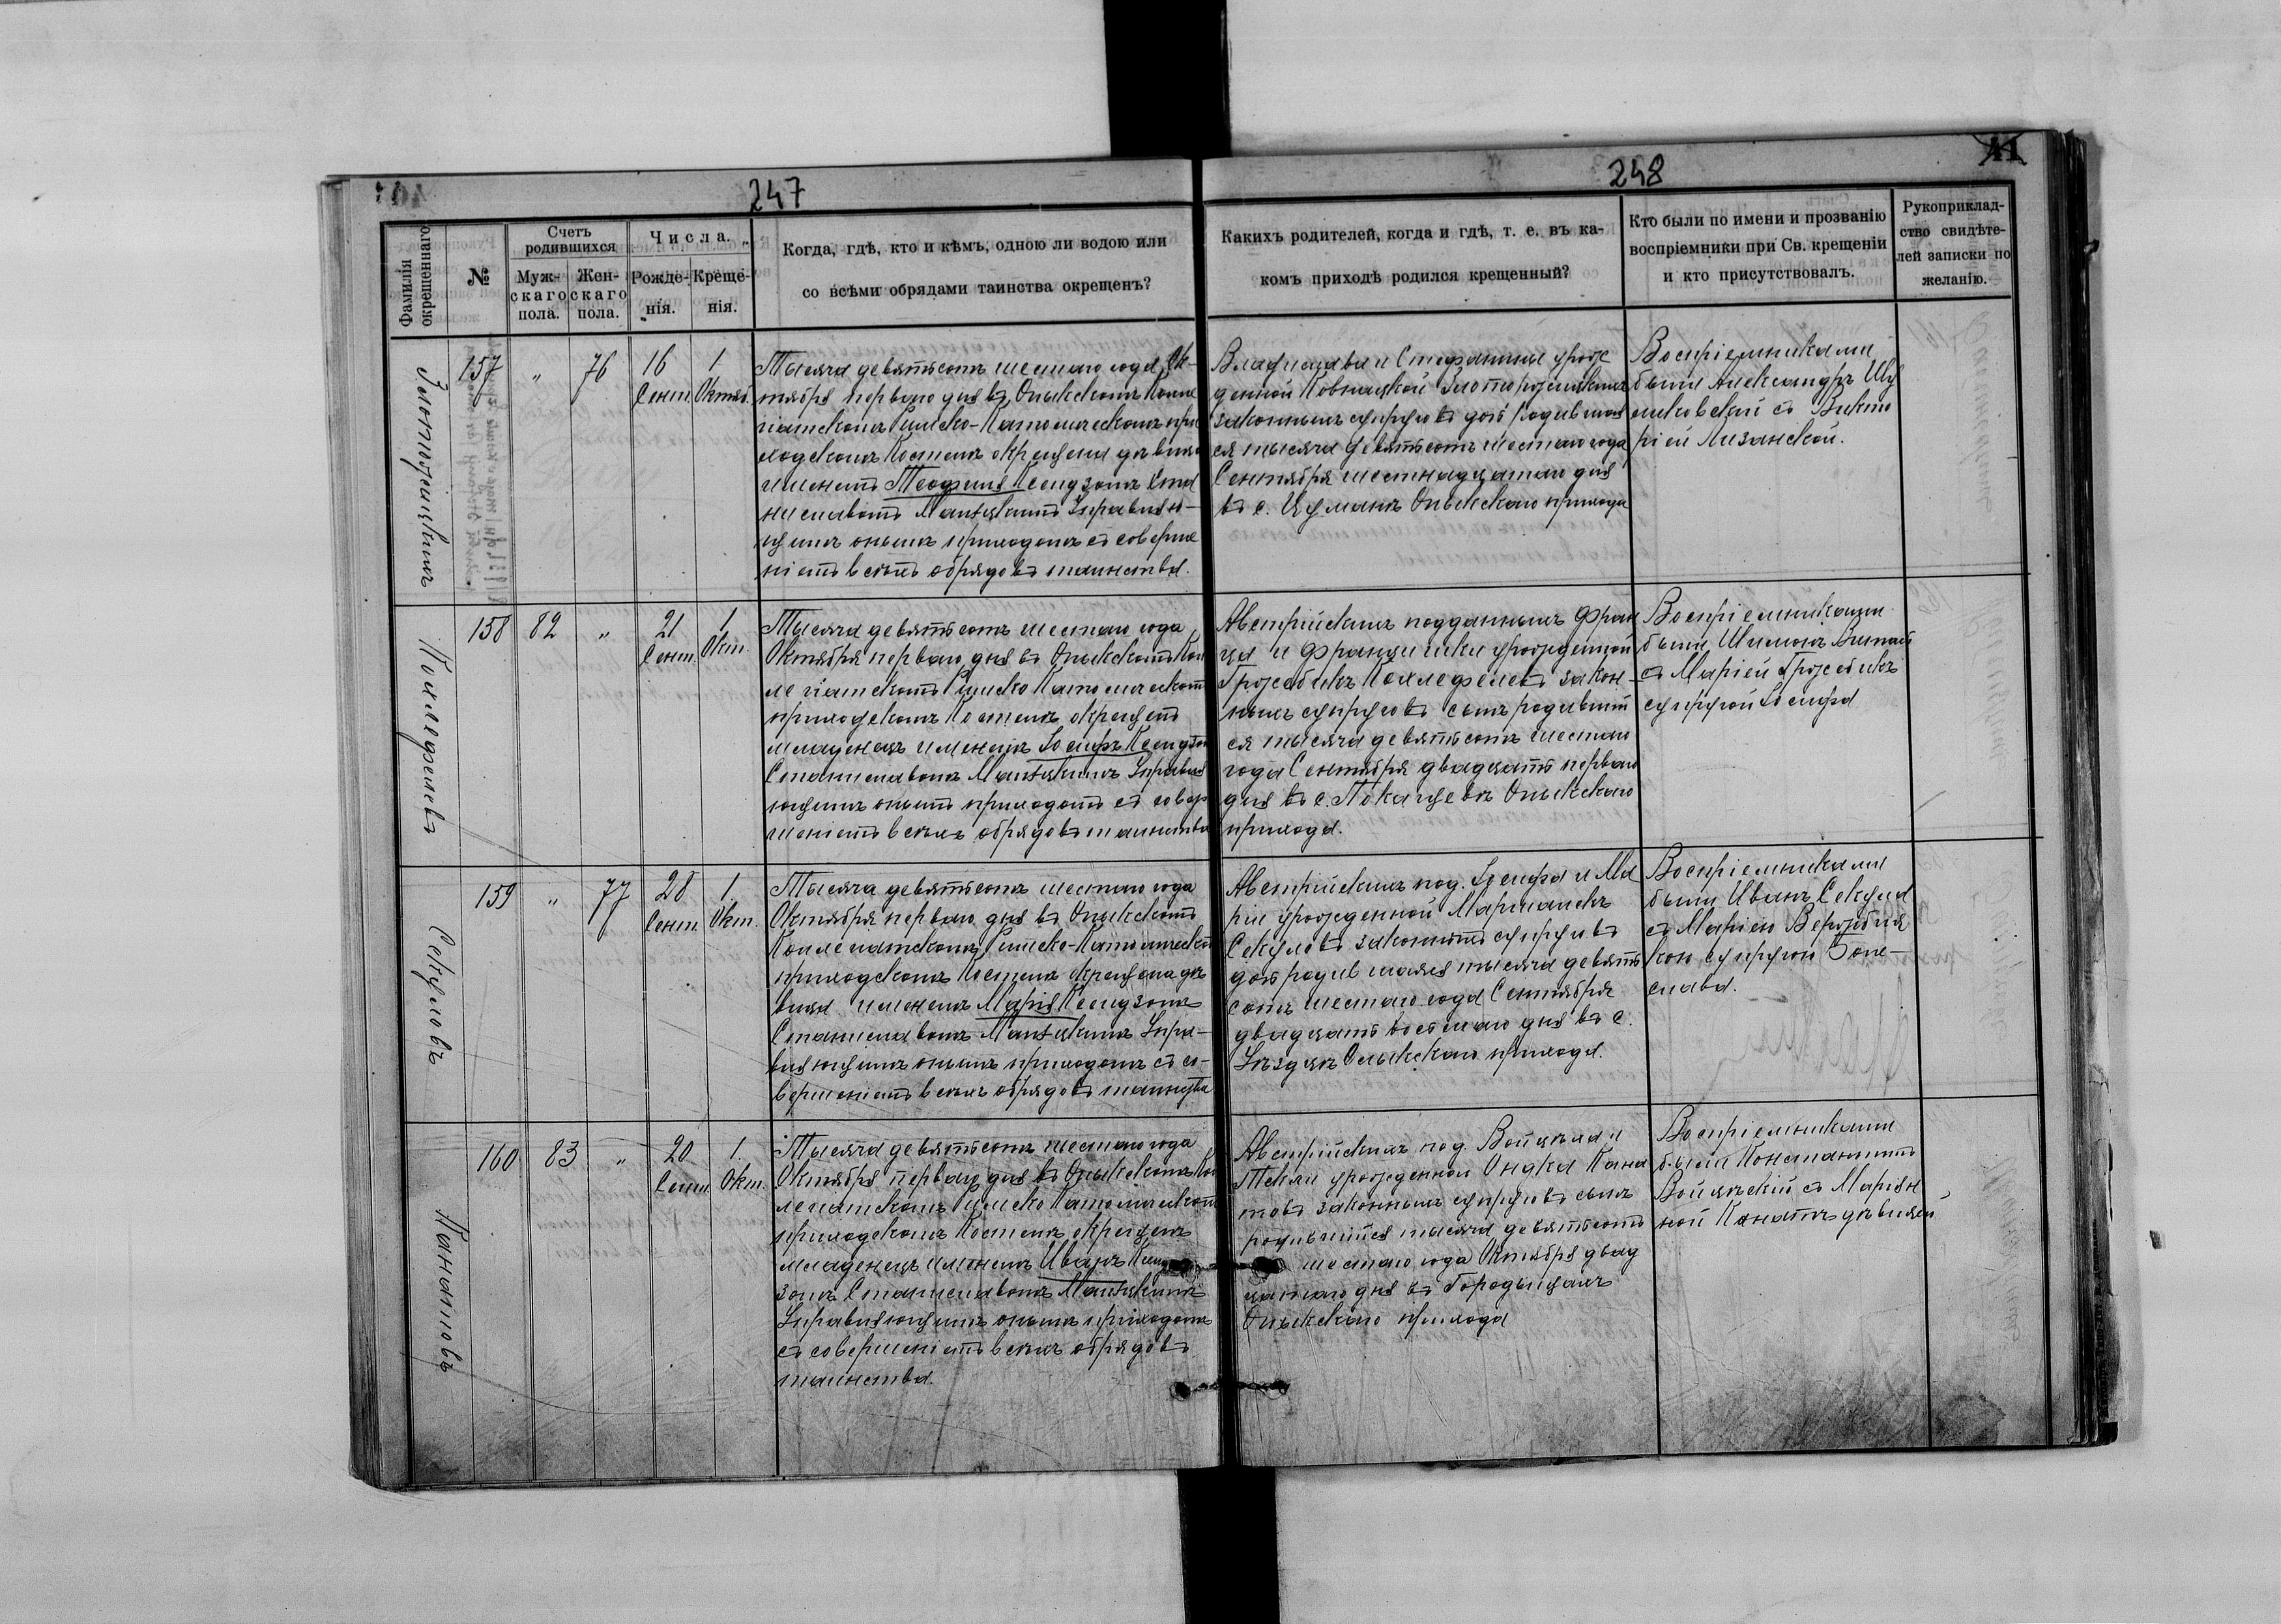 247
Фамилія окрещеннаго
№
Счетъ родившихся
Мужскаго пола.
Женскаго пола.
Числа.
Рожденія.
Крещенія.
Когда, гдѣ, кто и кѣмъ, одною ли водою или
со всѣми обрядами таинства окрещенъ?
248
41
Какихъ родителей, когда и гдѣ, т. е. въ ка-
комъ приходѣ родился крещенный?
Кто были по имени и прозванію
воспріемники при Св. крещеніи
и кто присутствовалъ.
Рукоприклад-
ство свидѣте-
лей записки по
желанію.
157 " 76 16 Сент. 1 Октяб.
Тысяча девятьсотъ шестаго года, Ок-
тября перваго дня въ Олыкскомъ Колле
гіатскомъ Римско-Католическомъ при
ходскомъ Костелѣ окрещена дѣвица
именемъ Теофиля Ксендзомъ Ста
ниславомъ Управляю-
щимъ онымъ приходомъ съ соверше
ніемъ всѣхъ обрядовъ таинства.
Владислава и Стефаніи урож
денной
законныхъ супруговъ дочь родившая
ся тысяча девятьсотъ шестаго года
Сентября шестнадцатаго дня
въ с. Цуманѣ Олыкскаго прихода
Воспріемниками
были Александръ
съ Викто
ріей Лизанской.
Кохлефелевъ
158 82 " 21 Сент. 1 Окт.
Тысяча девятьсотъ шестаго года
Октября перваго дня въ Олыкскомъ Кол
легіатскомъ Римско Католическомъ
приходскомъ Костелѣ окрещенъ
младенецъ именемъ Іосифъ Ксендзомъ
Станиславомъ Управля
ющимъ онымъ приходомъ съ совер
шеніемъ всѣхъ обрядовъ таинства
Австрійскихъ подданныхъ Фран
ца и Францишки урожденной
Гржебикъ Кохлефелевъ закон-
ныхъ супруговъ сынъ родивший
ся тысяча девятьсотъ шестаго
года Сентября двадцать перваго
дня въ с. Покащевѣ Олыкскаго
прихода.
Воспріемниками
были Шимонъ
съ Маріей Гржебикъ
супругой Іосифа
Секуловъ
159 " 77 28 Сент. 1. Окт.
Тысяча девятьсотъ шестаго года
Октября перваго дня въ Олыкскомъ
Коллегіатскомъ Римско-Католическомъ
приходскомъ Костелѣ окрещена дѣ
вица именемъ Марія Ксендзомъ
Станиславомъ Упра-
вляющимъ онымъ приходомъ съ со-
вершеніемъ всѣхъ обрядовъ таинства
Австрійскихъ под. Іосифа и Ма
ріи урожденной
Секуловъ законныхъ супруговъ
дочь родившаяся тысяча девять
сотъ шестаго года Сентября
двадцать восьмаго дня въ с.
Уѣздцѣ Олыкскаго прихода.
Воспріемниками
были Иванъ Секула
съ Маріею Вержбиц
кою супругою Боле-
слава.
Канатовъ
160 83 " 20 Сент. 1. Окт.
Тысяча девятьсотъ шестаго года
Октября перваго дня въ Олыкскомъ Кол
легіатскомъ Римско Католическомъ
приходскомъ Костелѣ окрещенъ
младенецъ именемъ Иванъ Ксенд
зомъ Станиславомъ
Управляющимъ онымъ приходомъ
съ совершеніемъ всѣхъ обрядовъ
таинства.
Австрійскихъ под. Войцѣха и
Теклі урожденной Ондка Кана
товъ законныхъ супруговъ сынъ
родившійся тысяча девятьсотъ
шестаго года Октября двад
цатаго дня въ Городищахъ
Олыкскаго прихода
Воспріемниками
были Константинъ
съ Маріян
ной Канатъ дѣвицей